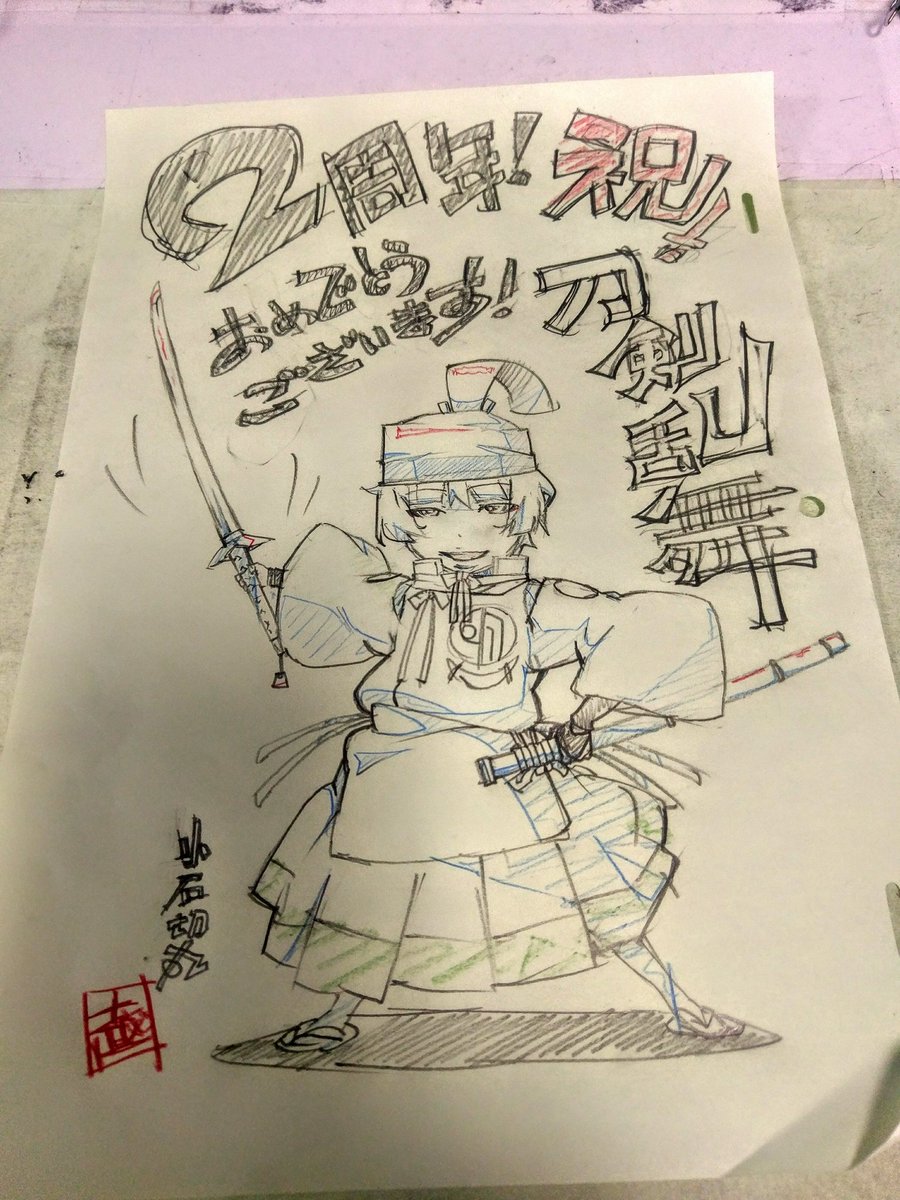 祝!!
刀剣乱舞
2周年!
おめでとう
ございます!
石切丸